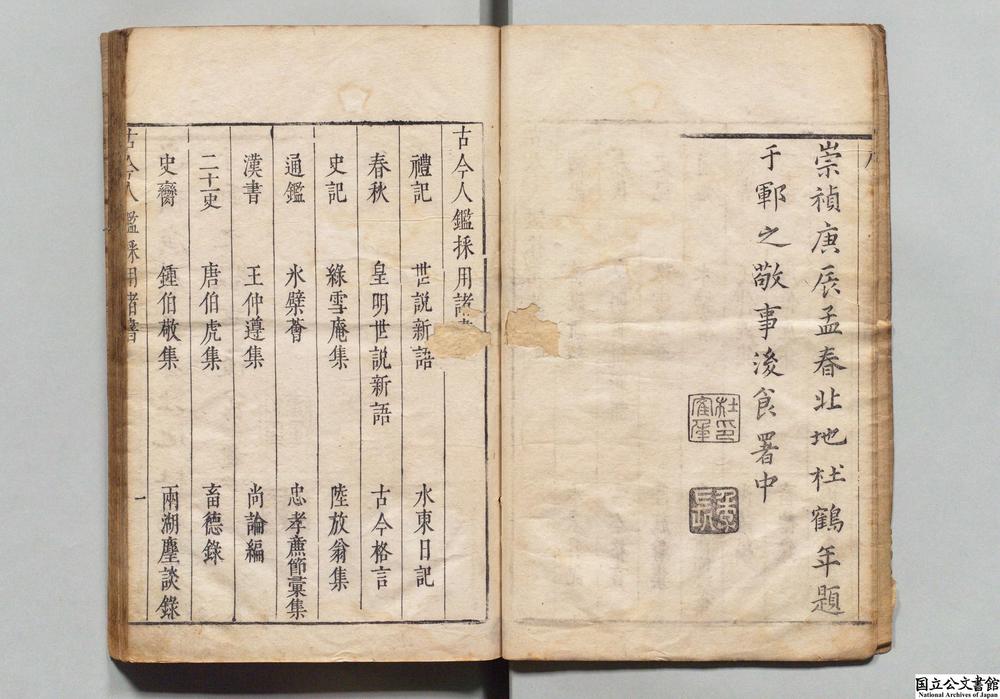 崇禎庚辰孟春北地杜鶴年題
于鄆之敬事後食署中
古今人鑑採用諸書
禮記 世説新語 水東日記
春秋 皇明世説新語 古今格言
史記 綠雪庵集 陸放翁集
通鑑 氷檗薈 忠孝亷節彚集
漢書 王仲遵集 尚論編
二十一史 唐伯虎集 畜德錄
史臠 鍾伯敬集 兩湖麈談錄
古今人鑑採用諸書
一
国立公文書館
National Archives of Japan